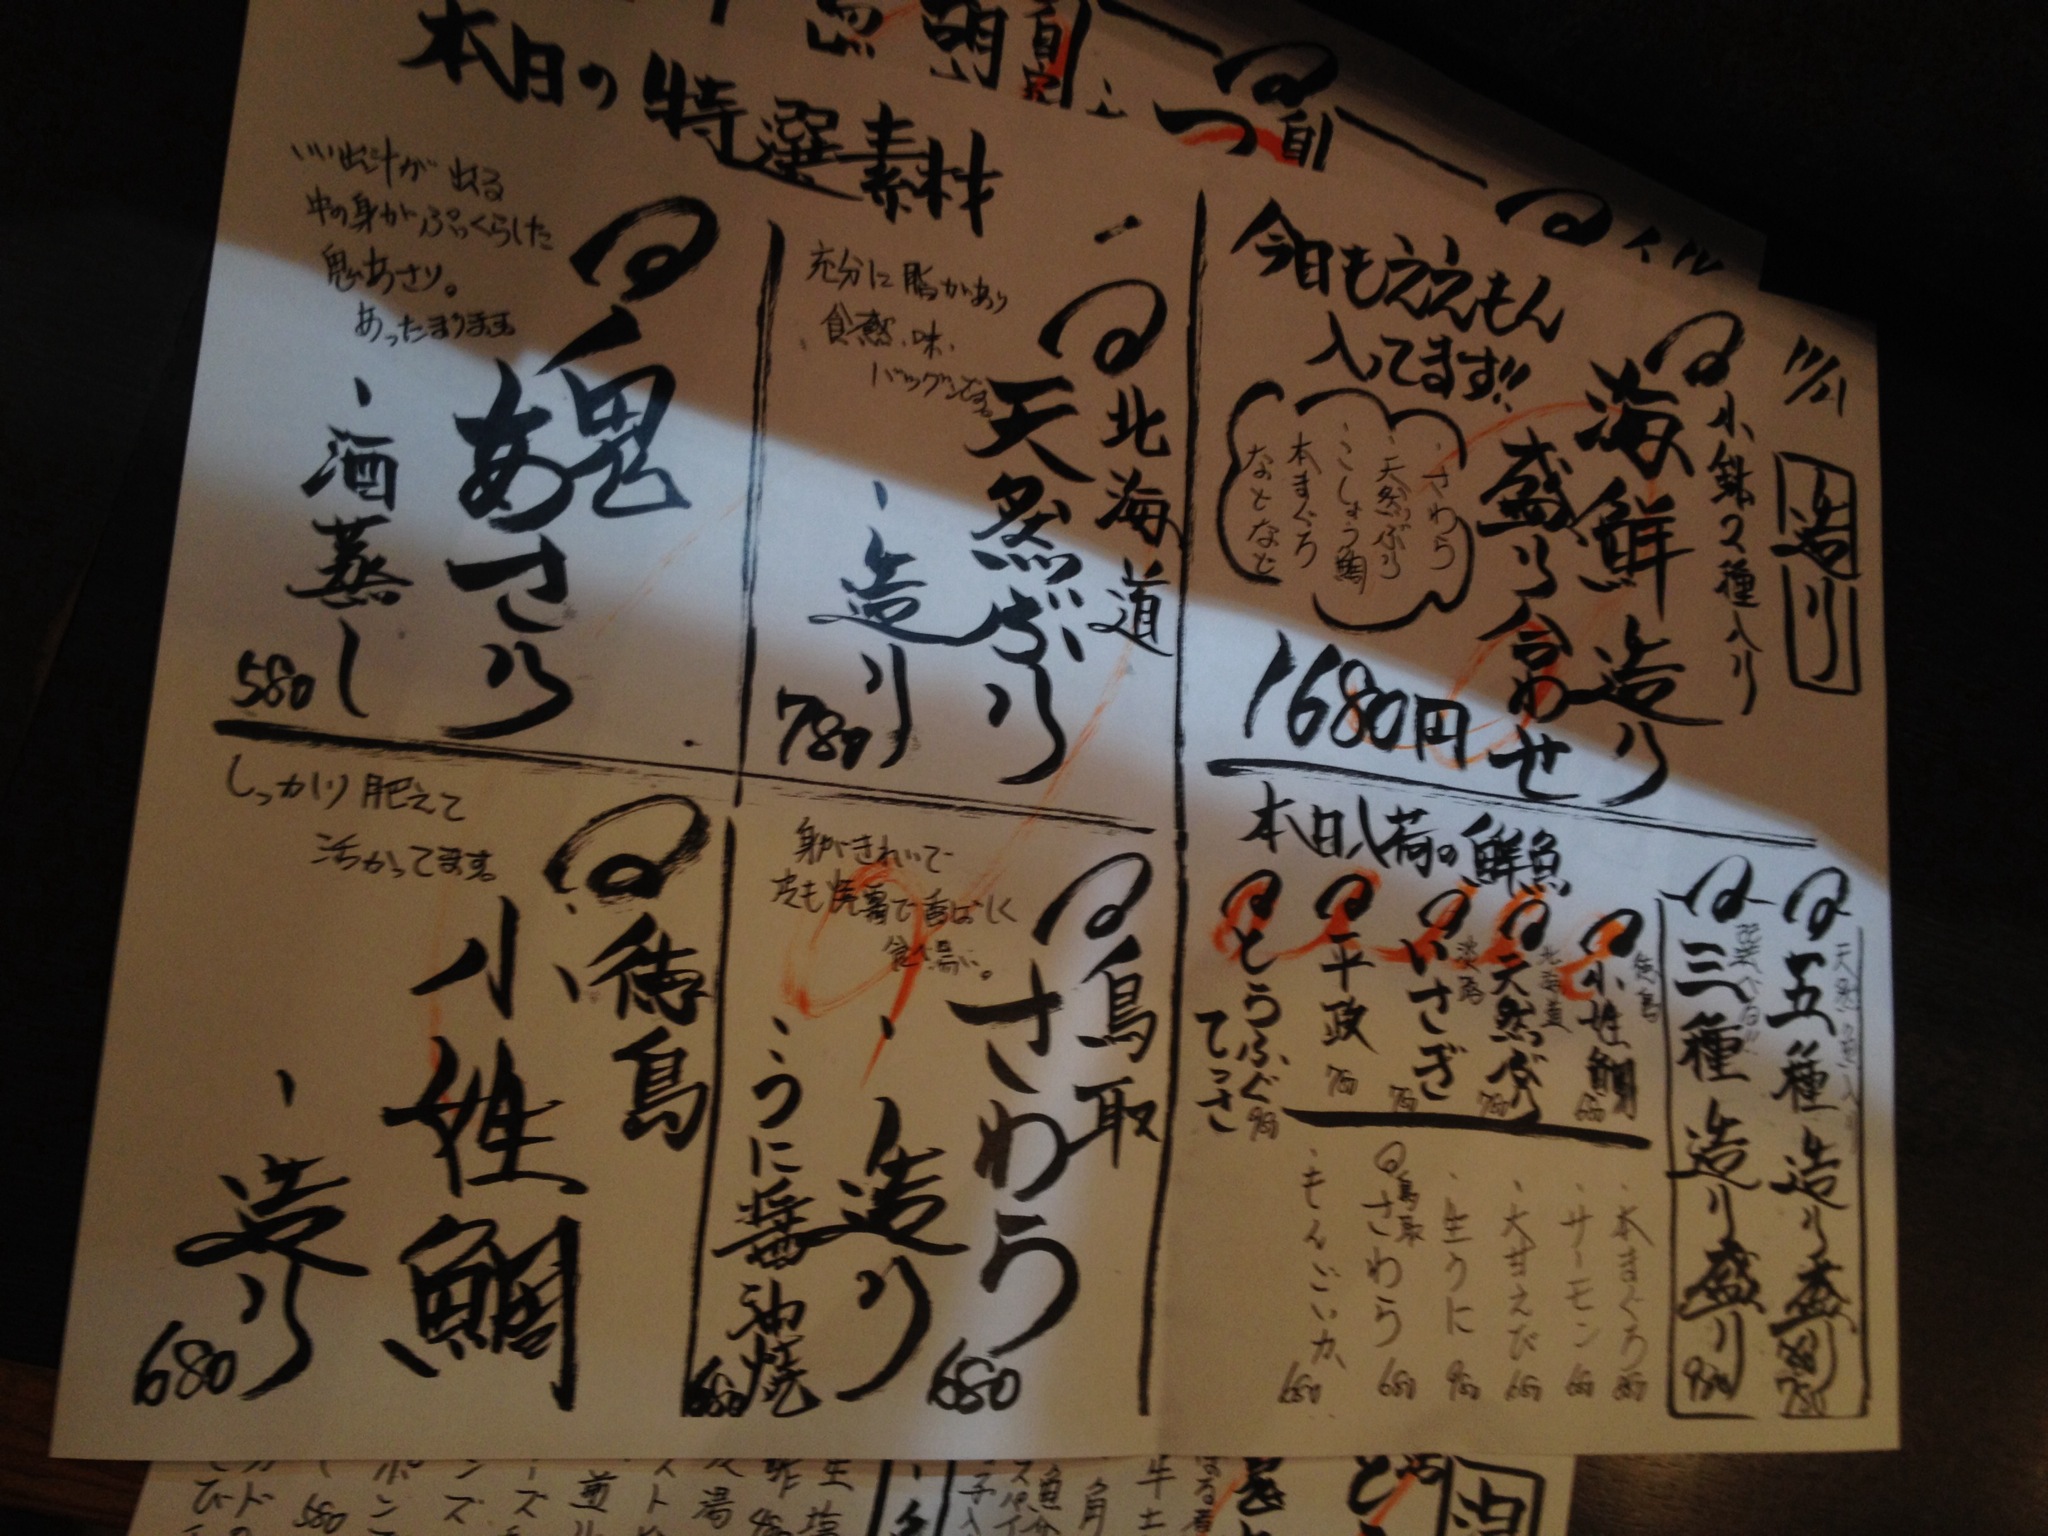 11/21
造り
小鉢2種入り
海鮮造り
盛り合わせ
今日もええもん
入ってます!!
・さわら
・天然ぶり
・こしょう鯛
本まぐろ
などなど
1680円
本日の特選素材
北海道
天然ぶり
・造り
780
充分に脂があり
食感、味、
バツグンです。
鬼あさり
・酒蒸し
580
いい出汁が出る
中の身がぷっくらした
鬼あさり。
あったまります
五種造り盛り
三種造り盛り
選べる!!
980
本日入荷の鮮魚
徳島
小姓鯛
680
北海道
天然ぶり
780
淡路
いさぎ
780
平政
780
とらふぐ
てっさ
980
・本まぐろ
880
・サーモン
680
・大甘えび
680
・生うに
980
鳥取
さわら
680
・もんごいか
680
鳥取
さわら
・造り
680
・うに醤油焼
680
身がきれいで
皮も焼霜で香ばしく
食べ易い。
徳島
小姓鯛
・造り
680
しっかり肥えて
活かってます。